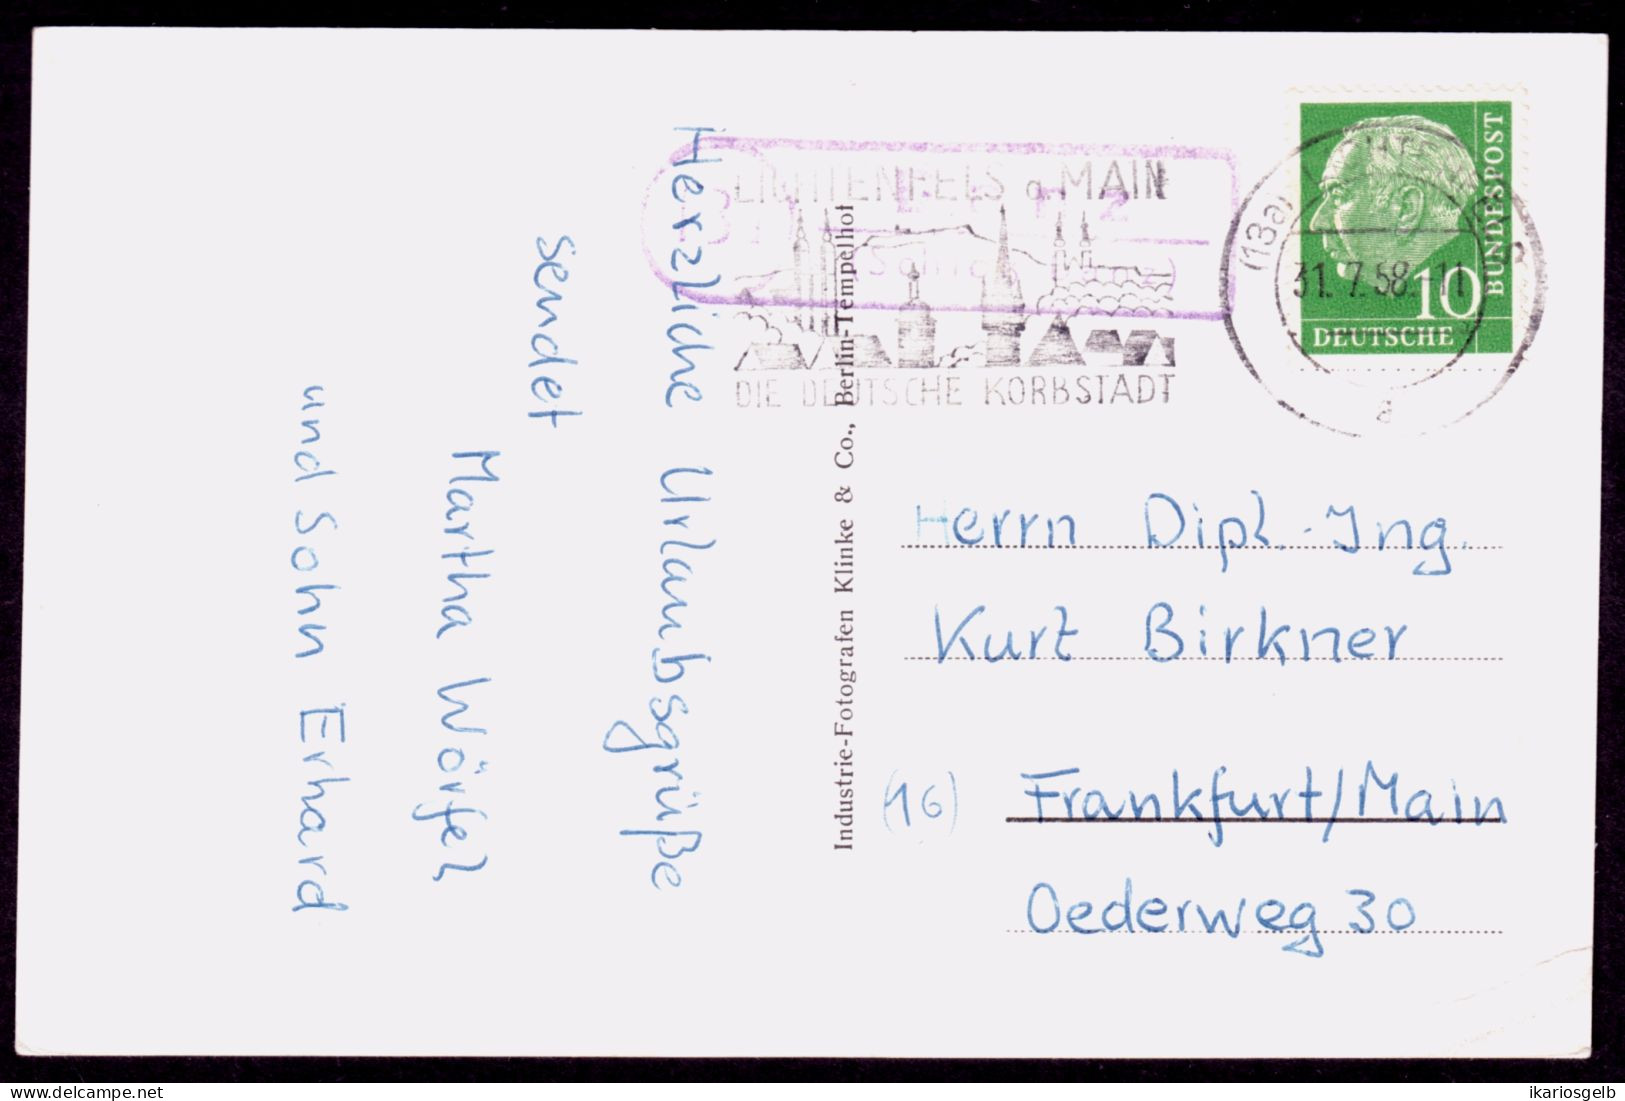 Herzliche Urlaubsgrüße
sendet
Martha Wörfel
und Sohn Erhard
Industrie-Fotografen Klinke & Co., Berlin-Tempelhof
LICHTENFELS a. MAIN
DIE DEUTSCHE KORBSTADT
(13a)
31. 7. 58. 11
a
BUNDESPOST
10
DEUTSCHE
Herrn Dipl.-Ing.
Kurt Birkner
(16) Frankfurt/Main
Oederweg 30
delcampe.net
ikariosgelb